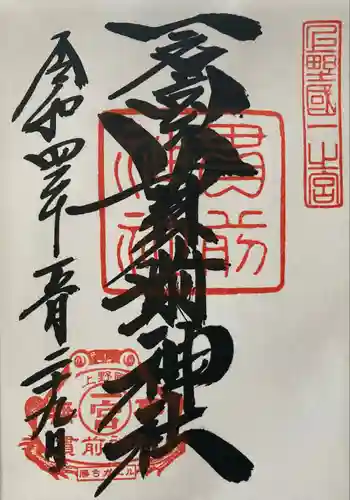 上野國一之宮
一之宮貫前神社
貫前
神社
令和四年五月二十九日
上野國
一宮
貫前神社
勝ちガエル